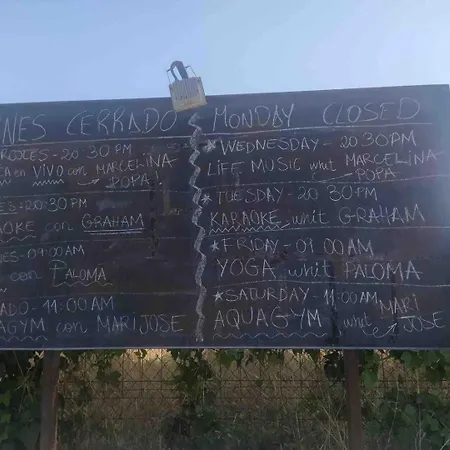 NES CERRADO
RCOLES - 20:30 PM
CA EN VIVO con MARCELINA
POPA!
ES: 20:30 PM
OKE con GRAHAM
NES - 04:00 AM
con PALOMA
ADO - 11:00 AM
AGYM con MARIJOSE
MONDAY CLOSED
WEDNESDAY - 20:30 PM
LIFE MUSIC whit MARCELINA
POPA
TUESDAY - 20:30 PM
KARAOKE whit GRAHAM
FRIDAY - 01.00 AM
YOGA whit PALOMA
SATURDAY - 11:00 AM
AQUAGYM whit MARI
JOSE